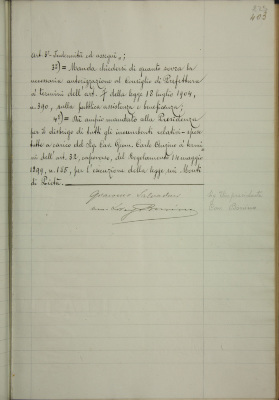 405
art. 5º Indennità ed assegni,;
3º)= Manda chiedersi di quanto sovra la
necessaria autorizzazione al Consiglio di Prefettura
a termini dell'art. 7 della legge 18 luglio 1904,
n. 390, sulla pubblica assistenza e beneficenza;
4º)= Dà ampio mandato alla Presidenza
per il disbrigo di tutti gli incumbenti relativi= spese
tutte a carico del Sig. Cav. Giov. Carlo
dell'art. 32, del Regolamento 14 maggio
1899, n. 185, per l'esecuzione della legge sui Monti
di Pietà.
Giacomo Salvadori